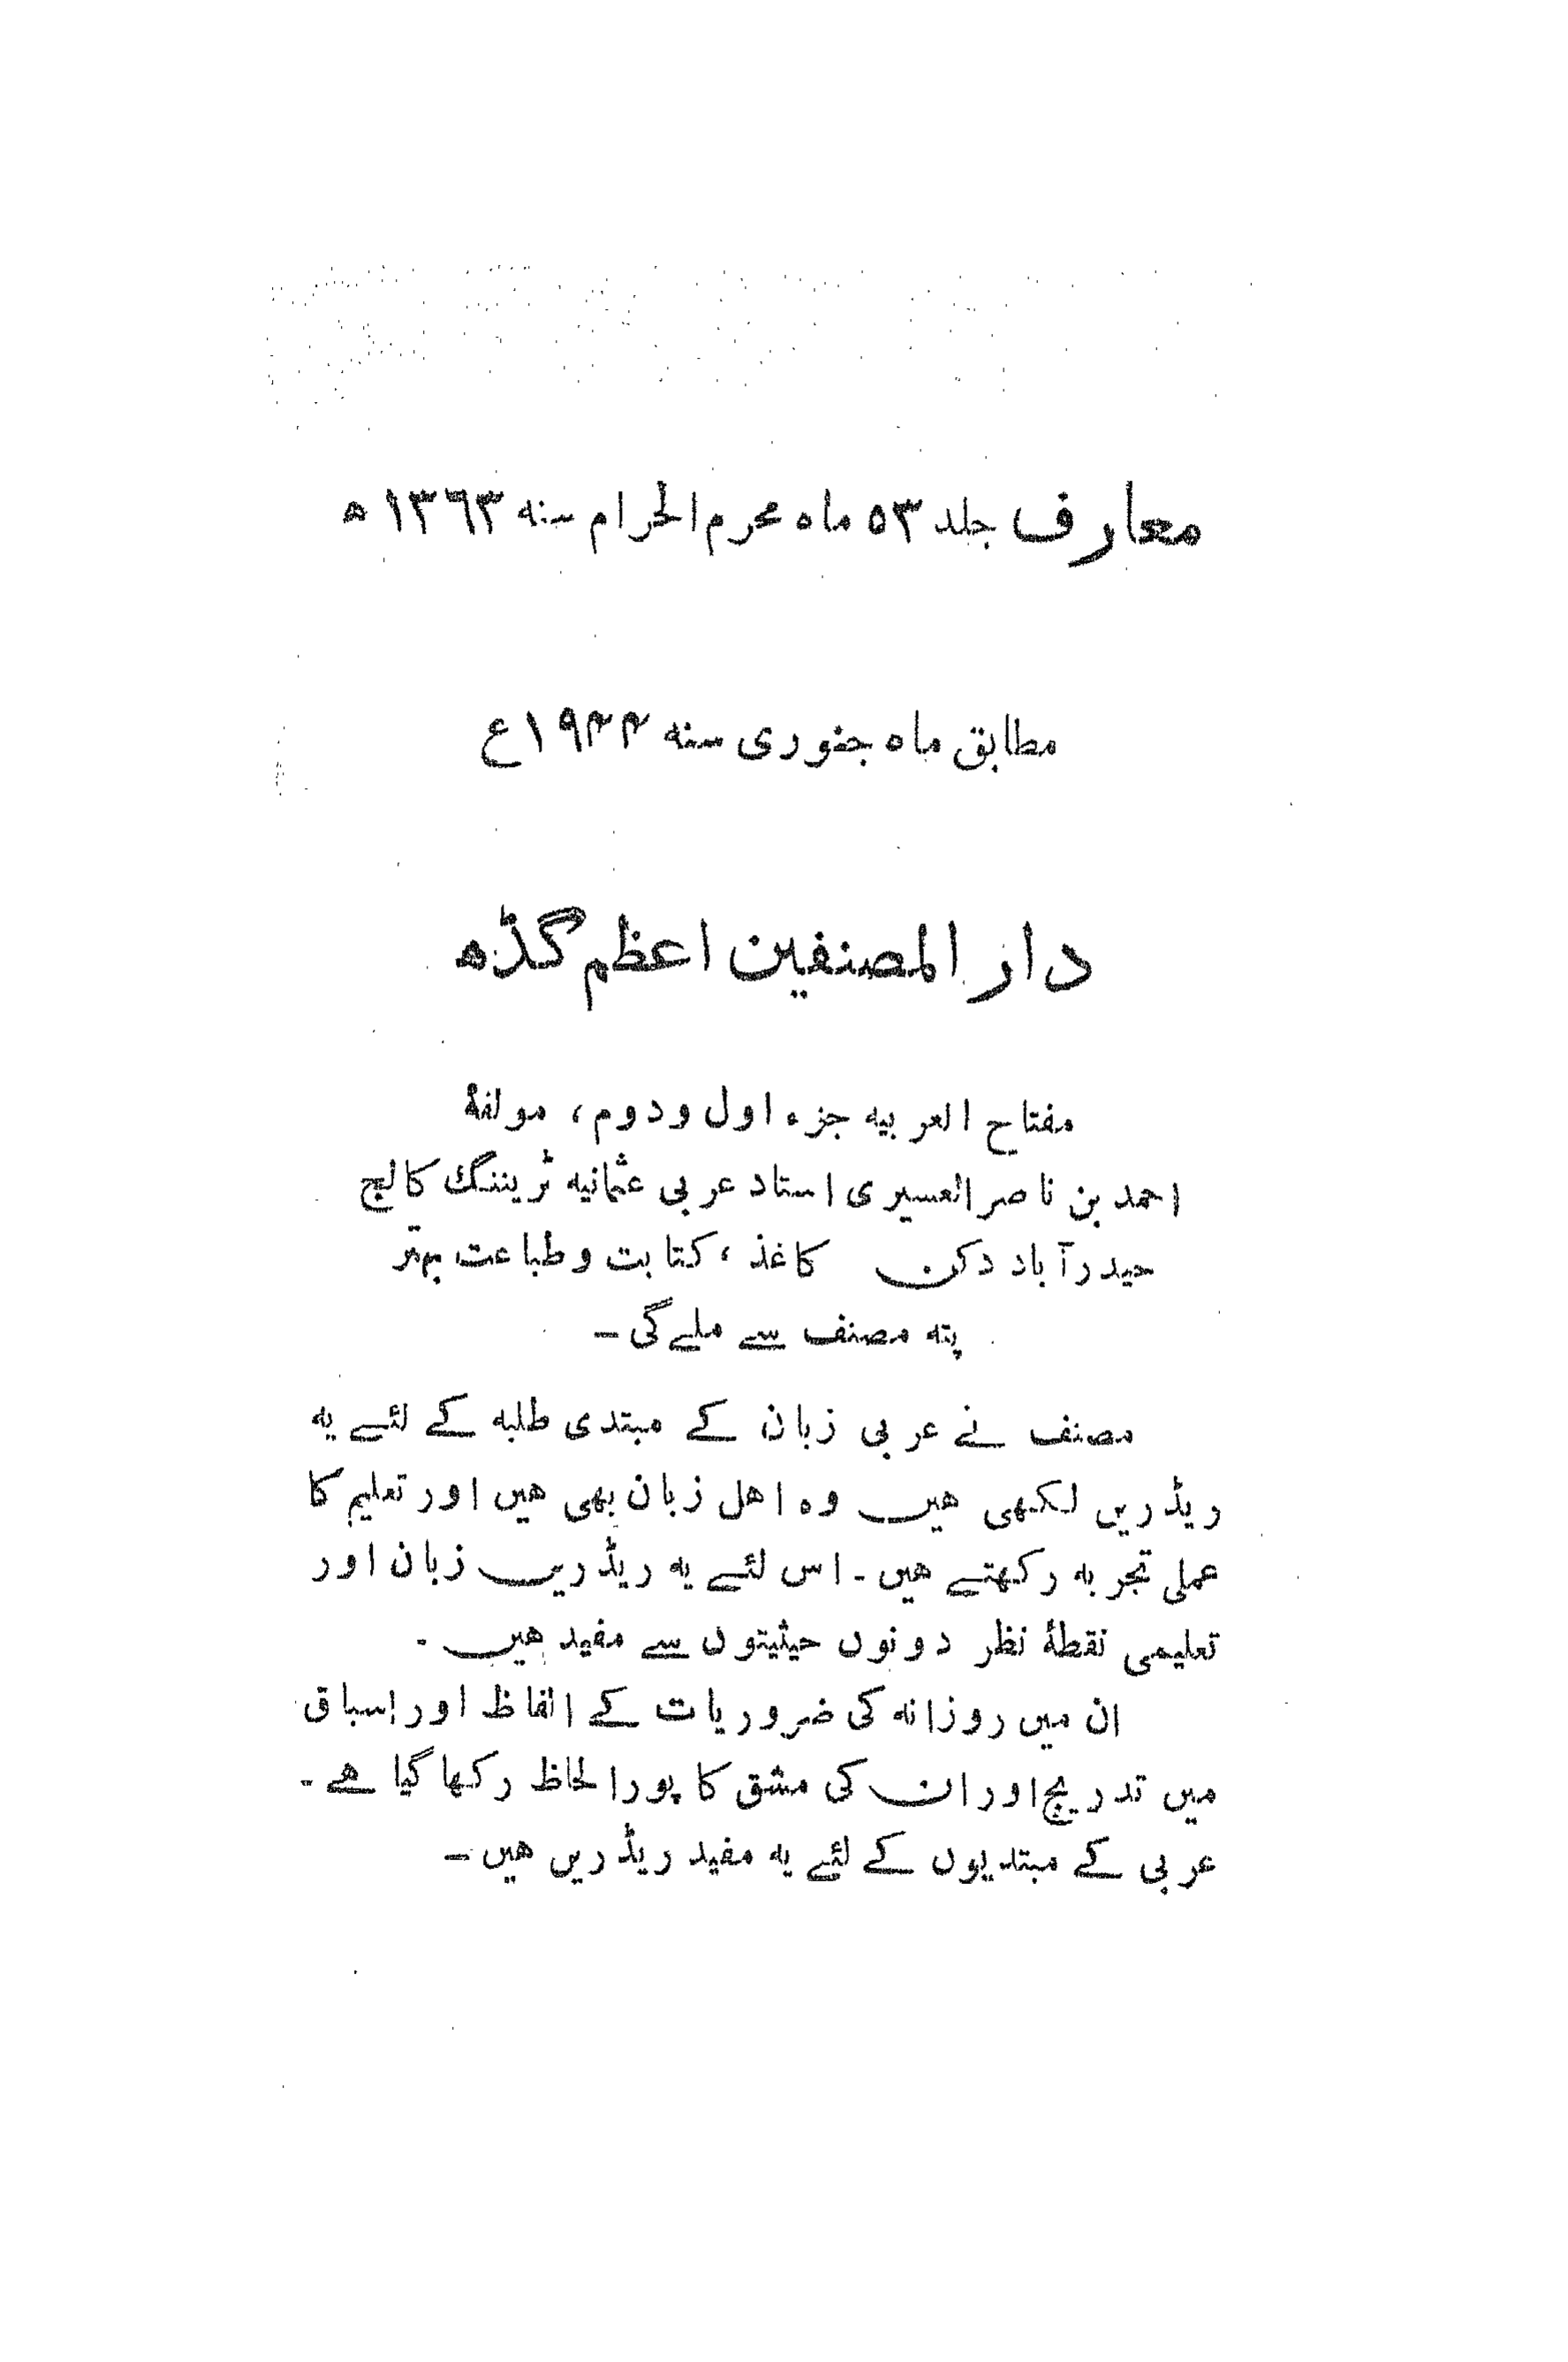 معارف جلد ۵۳ ماه محرم الحرام سنه ۱۳٦۳ ه
مطابق ماه جنوری سنه ۱۹۴۴ ع
دار المصنفین اعظم گڈه
مفتاح العربیه جزء اول و دوم، مولفۂ
احمد بن ناصر العسیری استاد عربی عثمانیه ٹریننگ کالج
حیدرآباد دکن کاغذ، کتابت و طباعت بہتر
پته مصنف سے ملے گی ـ
مصنف نے عربی زبان کے مبتدی طلبه کے لئے یه
ریڈریں لکھی ھیں وہ اھل زبان بھی ھیں اور تعلیم کا
عملی تجربه رکھتے ھیں ۔ اس لئے یه ریڈریں زبان اور
تعلیمی نقطۂ نظر دونوں حیثیتوں سے مفید ھیں ۔
ان میں روزانه کی ضروریات کے الفاظ اور اسباق
میں تدریج اور ان کی مشق کا پورا لحاظ رکھا گیا ھے ۔
عربی کے مبتدیوں کے لئے یه مفید ریڈریں ھیں ـ